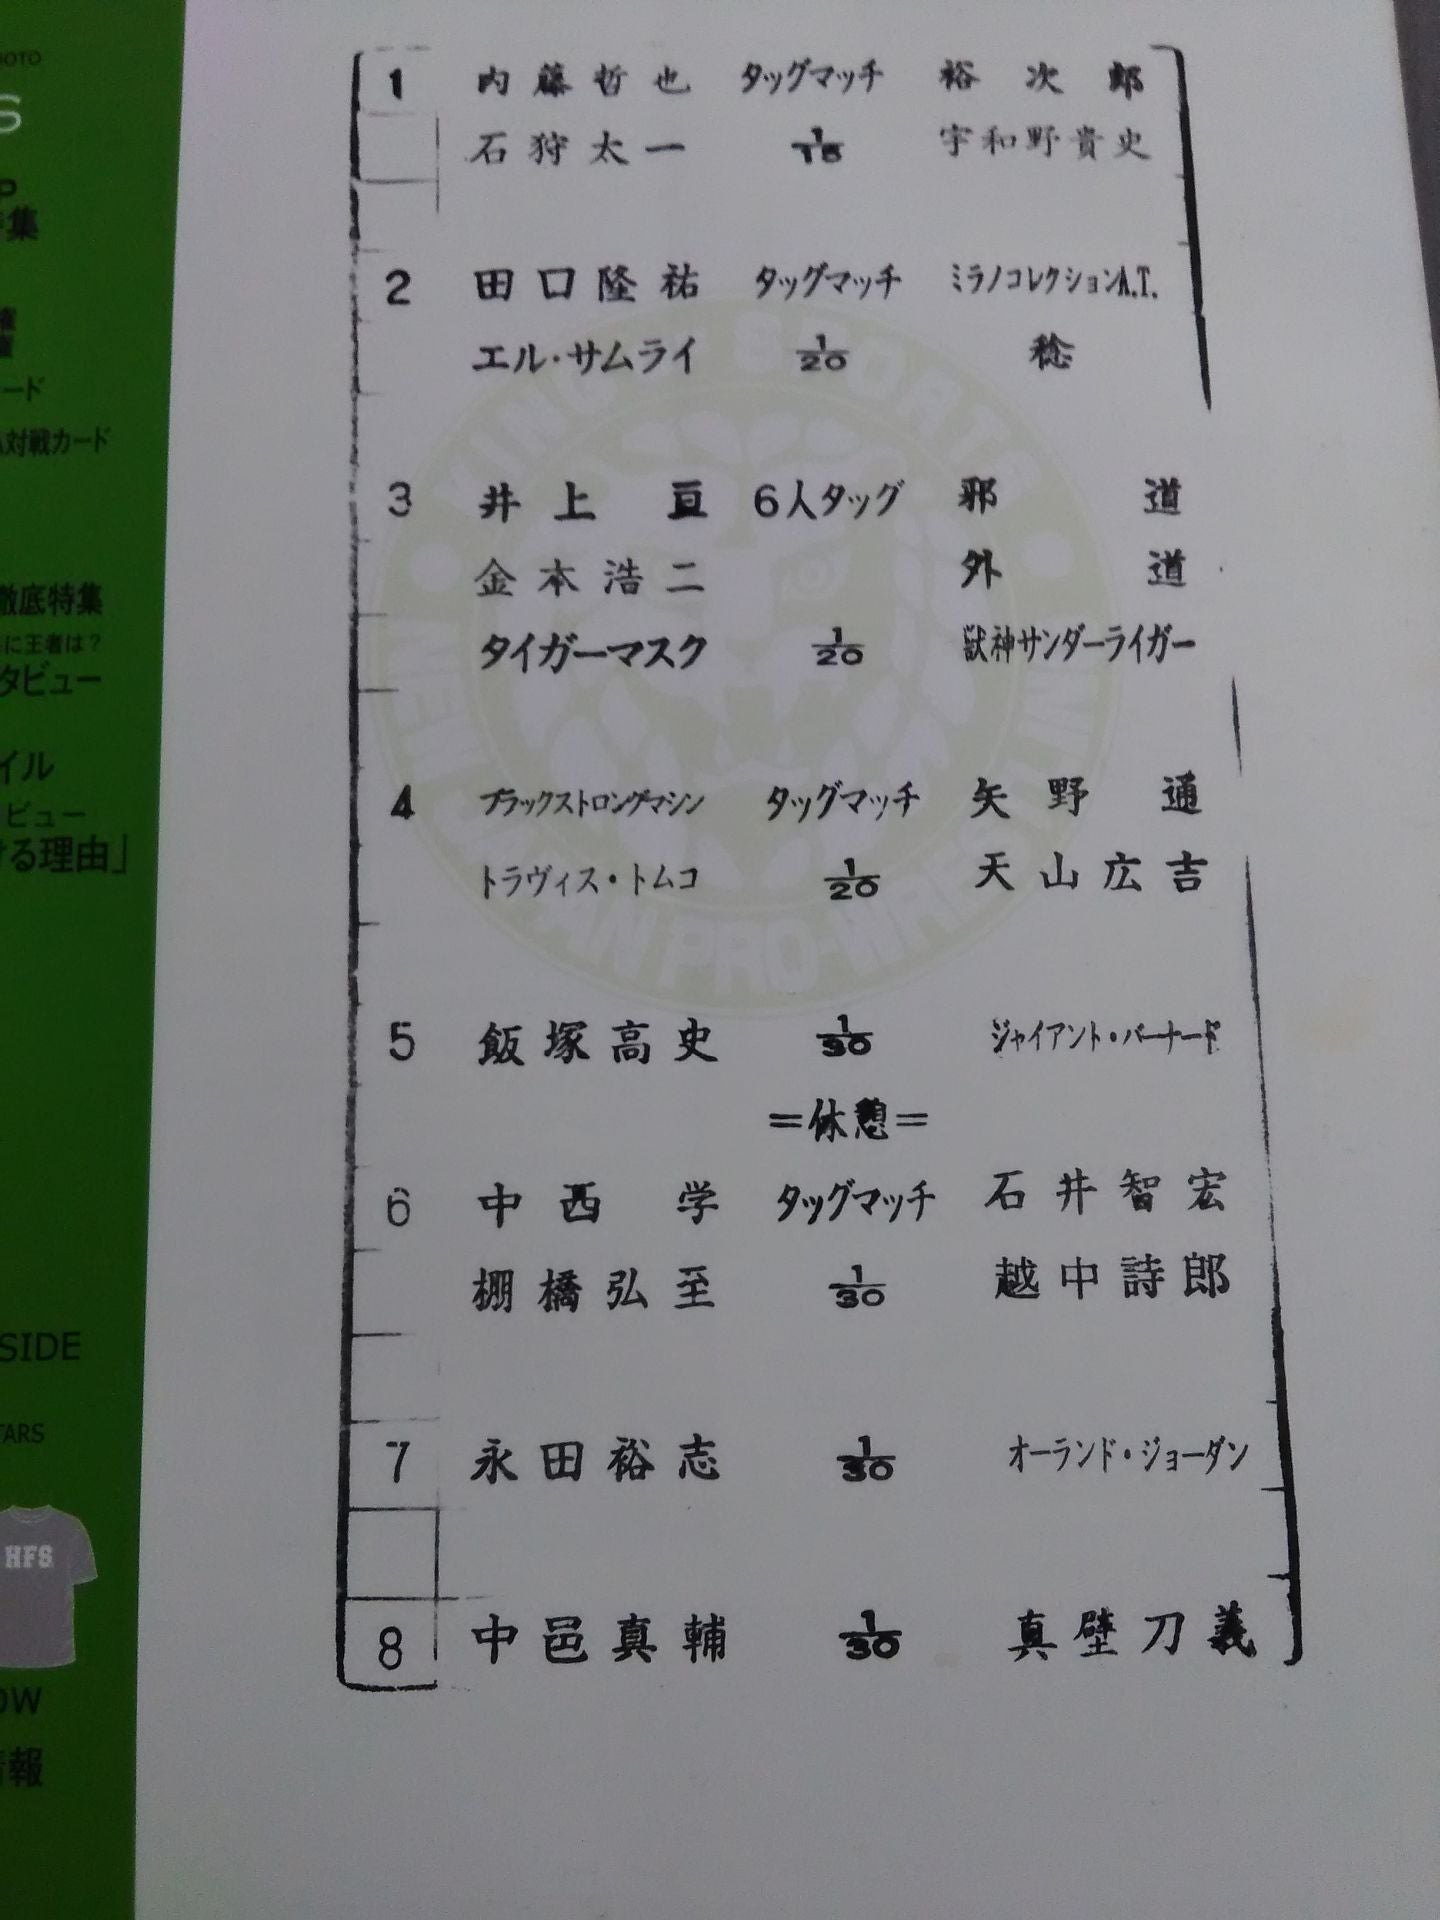 OTO
S
P
集
権
ード
対戦カード
徹底特集
に王者は?
タビュー
イル
ビュー
ける理由」
SIDE
TARS
HFS
OW
情報
1 内藤哲也 タッグマッチ 裕次郎
石狩太一 1/15 宇和野貴史
2 田口隆祐 タッグマッチ ミラノコレクションA.T.
エル・サムライ 1/20 稔
3 井上亘 6人タッグ 邪道
金本浩二 外道
タイガーマスク 1/20 獣神サンダーライガー
4 ブラックストロングマシン タッグマッチ 矢野通
トラヴィス・トムコ 1/20 天山広吉
5 飯塚高史 1/30 ジャイアント・バーナード
=休憩=
6 中西学 タッグマッチ 石井智宏
棚橋弘至 1/30 越中詩郎
7 永田裕志 1/30 オーランド・ジョーダン
8 中邑真輔 1/30 真壁刀義
KING OF SPORTS
NEW JAPAN PRO-WRESTLING